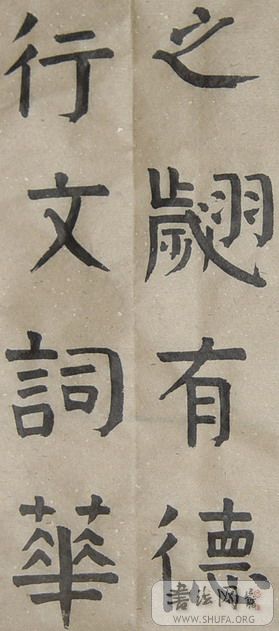 之翽有德
行文詞華
書法网
WWW.SHUFA.ORG